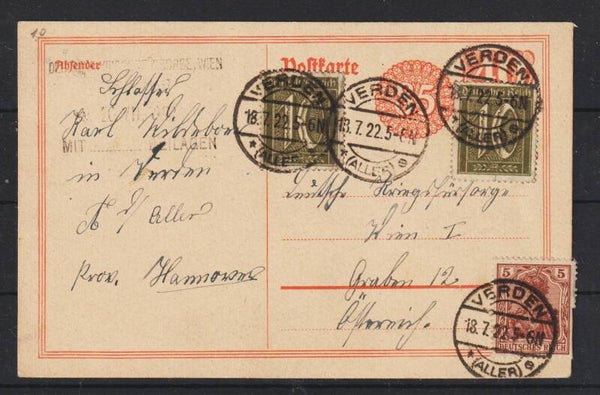 10
Absender
Postkarte
WIEN
Schlosser
Karl
MIT
in Verden
a/ Aller
Prov. Hannover
VERDEN
18.7.22.5-6N
(ALLER)
10
VERDEN
18.7.22.5-6N
(ALLER)
VERDEN
(ALLER)
Deutsches Reich
10
Deutsche Kriegsfürsorge
Wien I
Graben 12
Österreich.
5 5
VERDEN
18.7.22.5-6N
(ALLER)
DEUTSCHES REICH